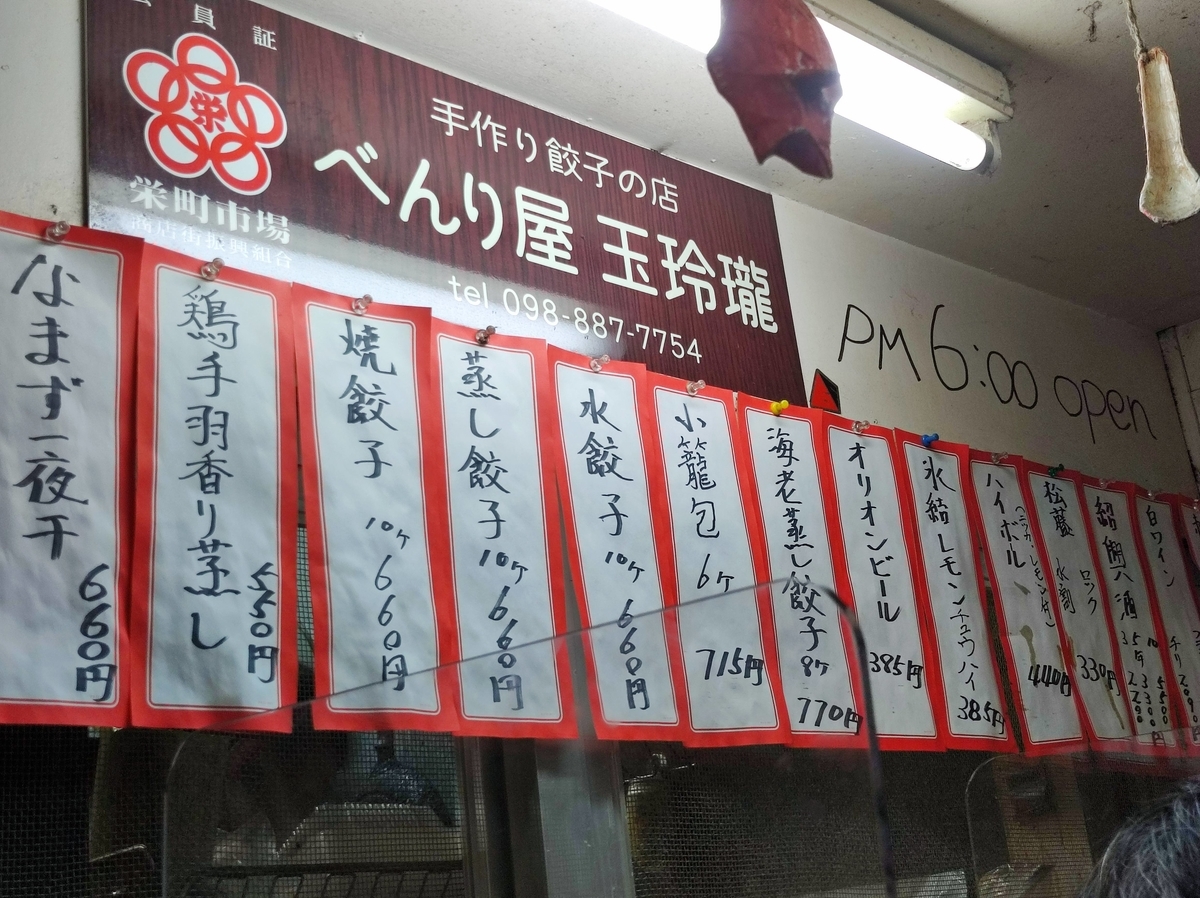 会員証
栄
栄町市場
商店街振興組合
手作り餃子の店
べんり屋 玉玲瓏
tel 098-887-7754
PM 6:00 open
なまず一夜干 660円
鶏手羽香り蒸し 550円
焼餃子 10ヶ 660円
蒸し餃子 10ヶ 660円
水餃子 10ヶ 660円
小籠包 6ヶ 715円
海老蒸し餃子 8ヶ 770円
オリオンビール 385円
氷結レモンチュウハイ 385円
ハイボル
(ニッカ・レモン付)
440円
松藤 水割 ロック 330円
紹興酒
白ワイン